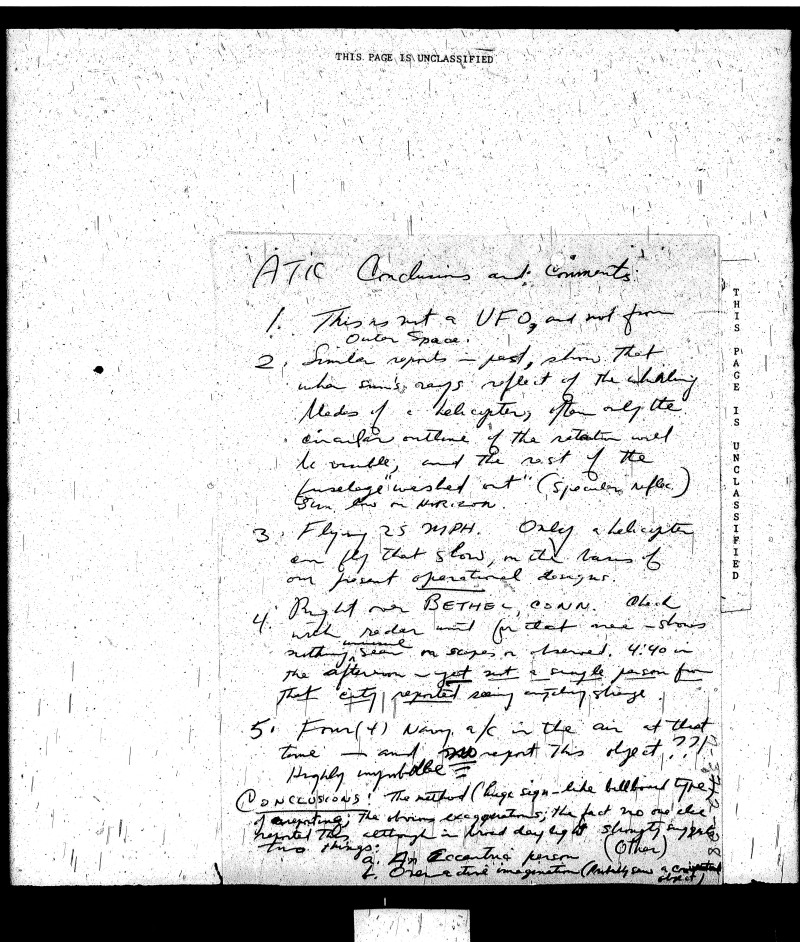 THIS PAGE IS UNCLASSIFIED
ATIC Conclusions and comments:
1. This is not a UFO, and not from
Outer Space.
2. Similar reports in past, show that
when sun's rays reflect of the whirling
blades of a helicopter, often only the
circular outline of the rotation will
be visible, and the rest of the
fuselage "washed out" (specular reflec.)
Sun low on HORIZON.
3. Flying 25 MPH. Only a helicopter
can fly that slow, on the basis of
our present operational designs.
4. Right over BETHEL, CONN. Check
with radar unit for that area - shows
unusual
nothing seen on scopes or observed. 4:40 in
the afternoon - yet not a single person from
that city reported seeing anything strange.
5. Four (4) Navy a/c in the air at that
time - and no report this object??!
Highly improbable
CONCLUSIONS: The method (huge sign-like billboard type)
of reporting; the obvious exaggerations; the fact no one else
reported this although in broad daylight strongly suggests
two things:
a. An Eccentric person (Other)
b. Over active imagination (Probably saw a conventional
object)
THIS PAGE IS UNCLASSIFIED